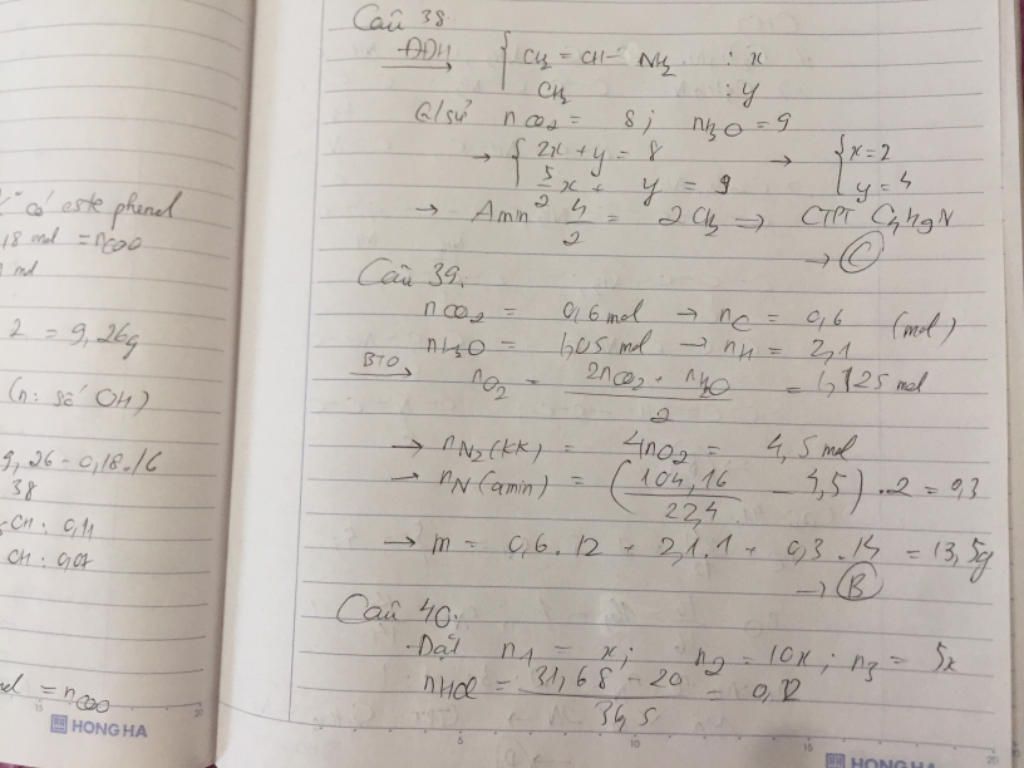 có este phenol
,18 mol = nCOO
mol
2 = 9,26g
(n: số OH)
9,26 - 0,18.16
38
CH: 0,11
CH: 0,07
= nCOO
HONG HA
Câu 38.
ĐĐH → { CH2 = CH - NH2 : x
CH2 : y
G/sử nCO2 = 8; nH2O = 9
→ { 2x + y = 8 → { x = 2
5/2 x + y = 9 y = 4
→ Amin 4/2 = 2 CH2 → CTPT C4H9N
→ C
Câu 39:
nCO2 = 0,6 mol → nC = 0,6 (mol)
nH2O = 1,05 mol → nH = 2,1
BTO → nO2 = (2nCO2 + nH2O)/2 = 1,125 mol
→ nN2 (kk) = 4nO2 = 4,5 mol
→ nN (amin) = (104,16/22,4 - 4,5).2 = 0,3
→ m = 0,6.12 + 2,1.1 + 0,3.14 = 13,5g
→ B
Câu 40:
Đặt n1 = x; n2 = 10x; n3 = 5x
nHCl = (31,68 - 20)/36,5 = 0,32
HONG HA